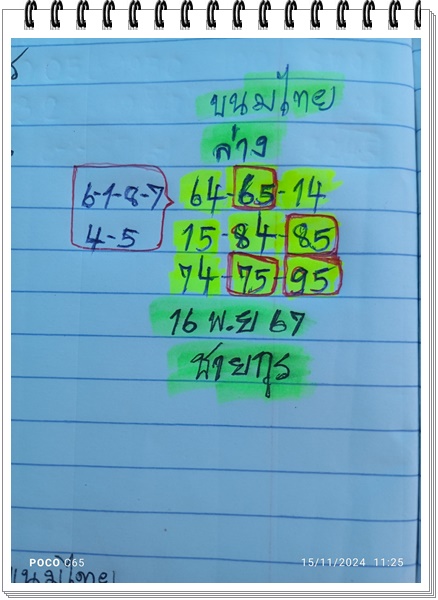 ขนมไทย
ล่าง
6-1-8-7
4-5
64-65-14
15-84-85
74-75-95
16 พ.ย 67
ชายกุร
POCO C65
15/11/2024 11:25
ขนมไทย